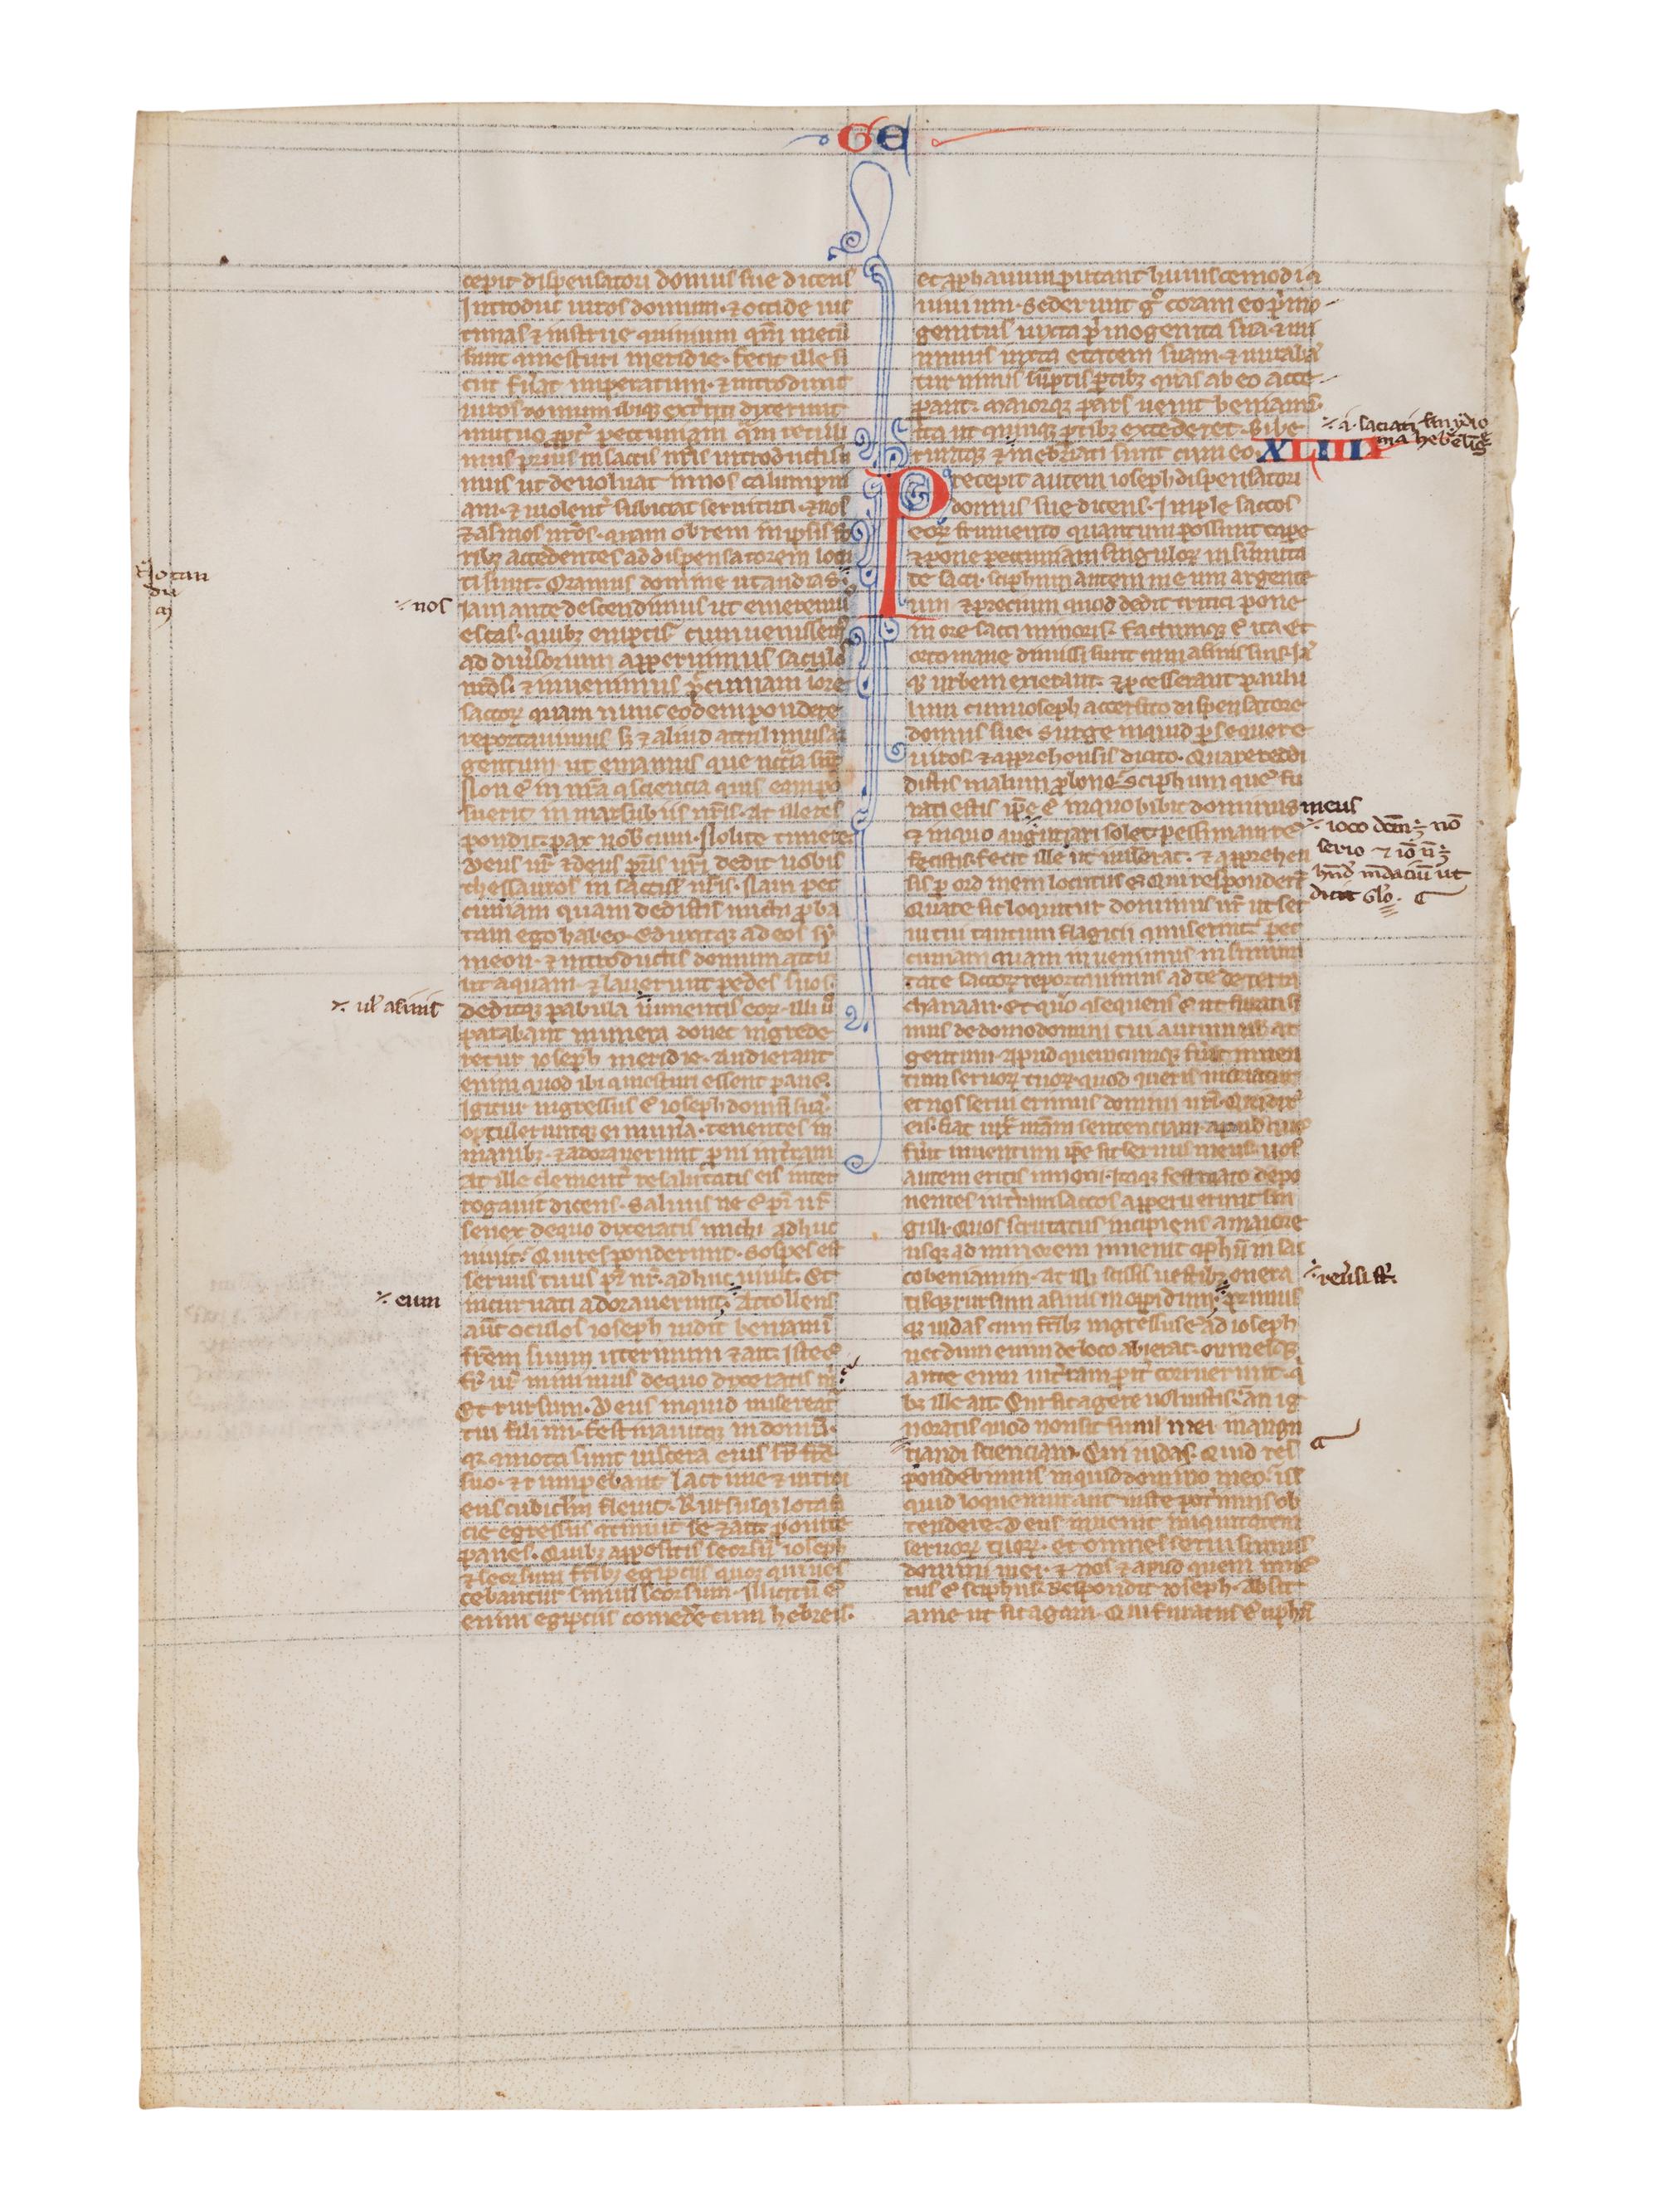 GE
cepit dispensatori domus sue dicens
Introduc uiros domum · ⁊ occide uic
timas ⁊ instrue quiuium qm̄ mecū
sunt comesturi meridie · fecit ille si
cut fu'at imperatum · ⁊ introduxit
uiros domum ibiq; ext'riti dixerunt
mutuo · ppt' peccuniam q̄m retuli
mus prius in saccis nr̄is introducti su
mus ut deuoluat in nos calumpni
am · ⁊ uiolent' subiciat seruituti · ⁊ nos
⁊ asinos nr̄os · quam ob rem in ipsis fo
rib; accedentes ad dispensatorem locu
ti sunt · Oramus domine ut audias
Iam ante descendimus ut emeremus
escas · quib; emptis cum uenissem'
ad diu'sorium apperuimus saculos
nr̄os · ⁊ inuenimus peccuniam i ore
saccor̄ quam nunc eodem pondere
reportauimus s; ⁊ aliud attulimus ar
gentum ut emamus que nccīa sūt
Non ē in nr̄a gsciencia quis eam po
suerit in marsubiis nr̄is · at ille res
pondit · pax uob̄cum · Nolite timere
Deus ur̄ ⁊ deus pr̄is ur̄i dedit uobis
thessauros in saccis ur̄is · Nam pec
cuniam quam dedistis michi proba
tam ego habeo · Eduxitq; ad eos sy
meon · ⁊ introductis domum attu
lit aquam · ⁊ lauerunt pedes suos
deditq; pabula iumentis eor̄ · illi ū
parabant munera donec ingrede
retur ioseph meridie · audierant
enim quod ibi comesturi essent pane ·
Igitur ingressus ē ioseph domū suā ·
optuleruntq; ei mun'a · tenentes in
manib; · ⁊ adorauerunt proni in t'ram
At ille clement' resalutatis eis inter
rogauit dicens · Saluus ne ē pr̄ ur̄
senex de quo dixeratis michi · adhuc
uiuit · Qui responderunt · Sospes est
seruus tuus pr̄ nr̄ · adhuc uiuit · Et
incuruati adorauerunt · Attollens
aūt oculos ioseph uidit beniamī
frēm suum uterinum ⁊ ait · Iste ē
fr̄ ur̄ minimus de quo dixeratis m̄
Et rursum · Deus inquid misereat'
tui fili mi · festinauitq; in domū ·
q; comota sunt uiscera eius sup fr̄e
suo · ⁊ erumpebant lacrime ⁊ introi
ens cubiclm̄ fleuit · Rursusq; lota fa
cie egressus gtinuit se ⁊ ait · ponite
panes · Quib; appositis seorsū ioseph
⁊ seorsum fr̄ib; egipciis quoq; qui ues
cebantur simul seorsum · Illicitū ē
enim egipciis comed'e cum hebreis ·
et prophanum putant huiuscemodi q
uiuium · Sederunt g° coram eo p'mo
genitus iuxta p'mogenita sua · ⁊ mi
nimus iuxta etatem suam · ⁊ miraba
tur nimis su'ptis partib; quas ab eo acce
perant · maiorq; pars uenit beniamī ·
Ita ut quinq; partib; excederet · Bibe
runtq; ⁊ inebriati sunt cum eo · XLIIII
Precepit autem ioseph dispensatori
domus sue dicens · Imple saccos
eor̄ frumento quantum possunt cape
⁊ pone peccuniam singulor̄ in summi
te sacci · sciphum autem meum argente
um ⁊ precium quod dedit tritici pone
in ore sacci minoris · factumq; ē ita Et
orto mane dimissi sunt cum asinis suis · Ia
q; urbem exierant · ⁊ processerant paulu
lum cum ioseph accersito dispensatore
domus sue · Surge inquid persequere
uiros · ⁊ apprehensis dicito · Quare reddi
distis malum pro bono Sciphum quē fu
rati estis ip̄e ē in quo bibit dominus meus
⁊ in quo auguriari solet · pessimam rē
fecistis · fecit ille ut iusserat · ⁊ apprehen
sis per ordinem locutus ē Qui responderūt
Quare sic loquitur dominus nr̄ ut ser
ui tui tantum flagicii comiserint · pec
cuniam quam inuenimus in summi
tate saccor̄ reportauimus ad te de terra
chanaan · Et quo gsequens ē ut furati si
mus de domo domini tui aurum uel ar
gentum · apud quemcumq; fu'it inuen
tum seruor̄ tuor̄ quod queris moriatur
et nos serui erimus domini nr̄i · Qui dix'
eis · fiat iuxta uram sentenciam · apud quē
fu'it inuentum ip̄e sit seruus meus · uos
autem eritis innoxii · Itaq; festinato depo
nentes in t'ram saccos apperuerunt sin
guli · Quos scrutatus incipiens a maiore
usq; ad minorem inuenit ciphū in sac
co beniamin · At illi scissis uestib; onera
tisq; rursum asinis in opidum · primus
q; iudas cum fr̄ib; ingressus ē ad ioseph
necdum enim de loco abierat · omnesq;
ante eum in t'ram p'it' corruerunt · q'
b; ille ait Cur sic agere uoluistis · An ig
noratis quod non sit similis mei in augu
riandi scienciam · Cui iudas · Quid res
pondebimus inquid domino meo · uel
quid loquemur aut iuste pot'imus ob
tendere · Deus inuenit iniquitatem
seruor̄ tuor̄ · et omnes serui sumus
domini mei · ⁊ nos ⁊ apud quem inuē
tus ē sciphus · Respondit ioseph · Absit
a me ut sic agam · Qui furatus ē ciphū
Notan
du
nos
ul' asinis
eum
.i. saciati s'm ydio
ma heb'
ioco dcm̄ nō
serio
mdaciū ut
dicit Glo.
reu'si st'